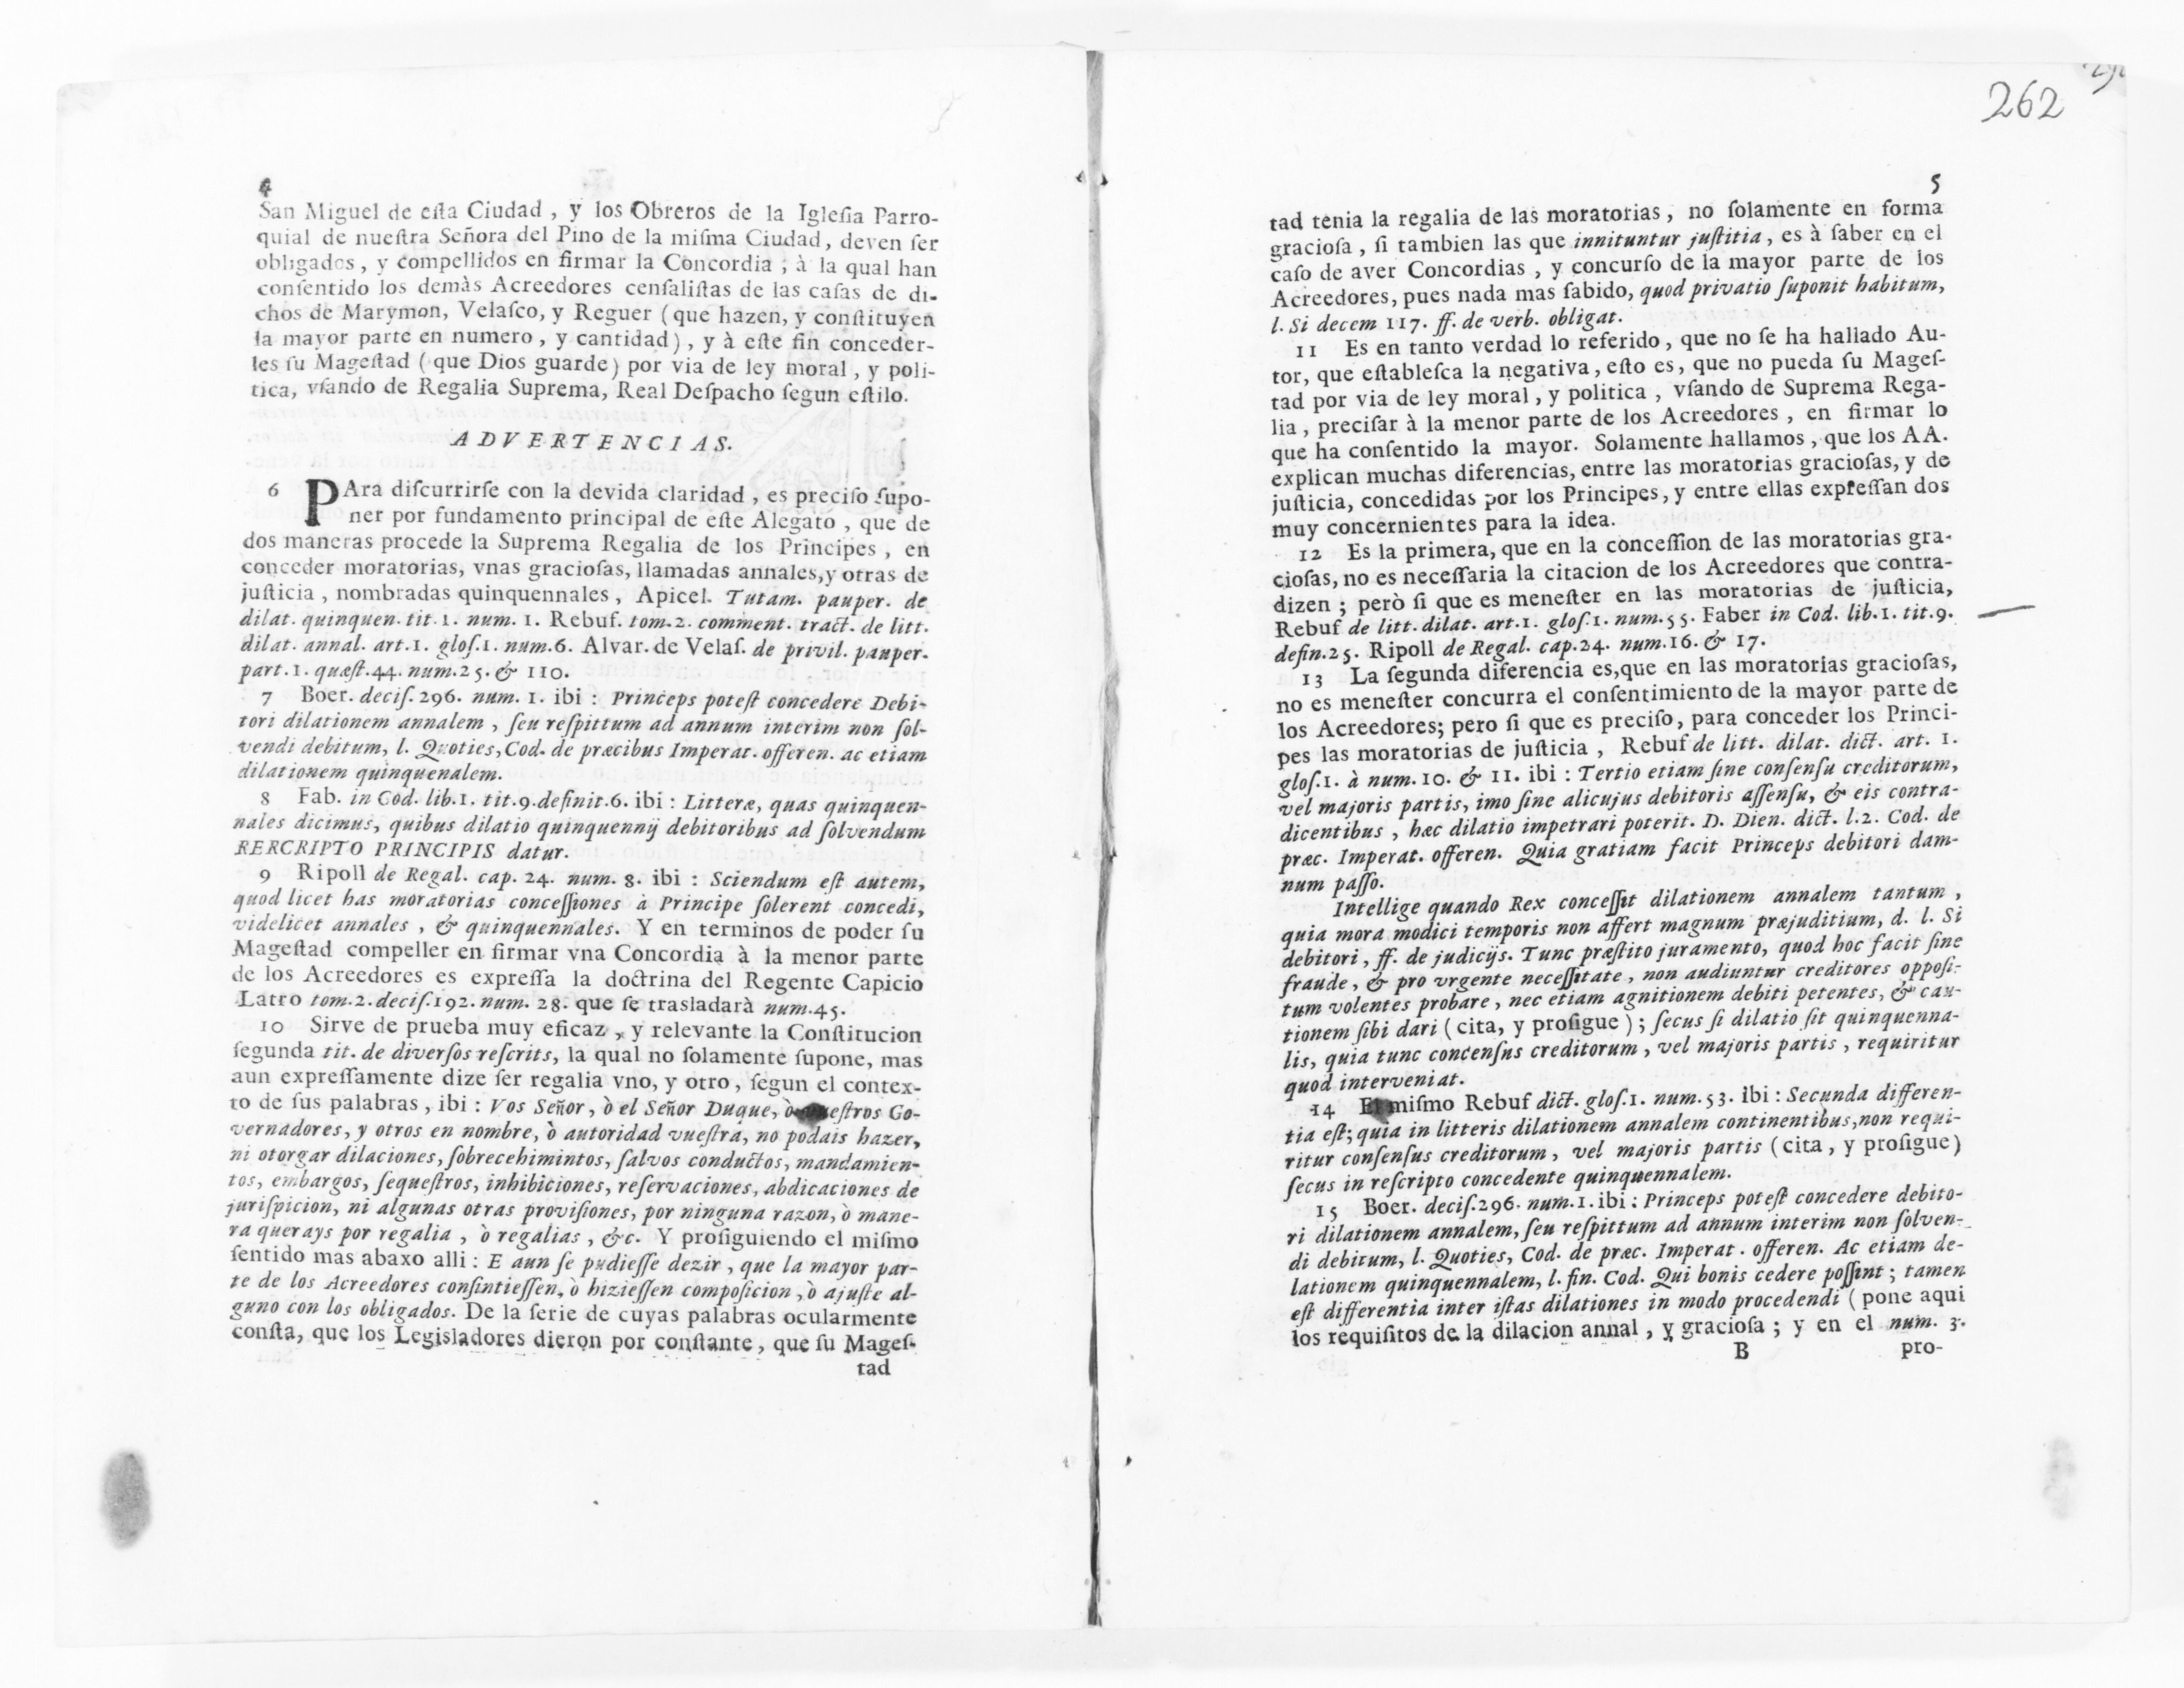 4
San Miguel de eſta Ciudad , y los Obreros de la Igleſia Parro-
quial de nueſtra Señora del Pino de la miſma Ciudad, deven ſer
obligados , y compellidos en firmar la Concordia ; à la qual han
conſentido los demàs Acreedores cenſaliſtas de las caſas de di-
chos de Marymon, Velaſco, y Reguer ( que hazen, y conſtituyen
la mayor parte en numero , y cantidad ) , y à eſte fin conceder-
les ſu Mageſtad ( que Dios guarde) por via de ley moral , y poli-
tica, vſando de Regalia Suprema, Real Deſpacho ſegun eſtilo.
ADVERTENCIAS.
6 PAra diſcurrirſe con la devida claridad , es preciſo ſupo-
ner por fundamento principal de eſte Alegato , que de
dos maneras procede la Suprema Regalia de los Principes , en
conceder moratorias, vnas gracioſas, llamadas annales,y otras de
juſticia , nombradas quinquennales , Apicel. Tutam. pauper. de
dilat. quinquen. tit. 1. num. 1. Rebuf. tom.2. comment. tract. de litt.
dilat. annal. art.1. gloſ.1. num.6. Alvar. de Velaſ. de privil. pauper.
part.1. quæſt.44. num.25. & 110.
7 Boer. deciſ.296. num. 1. ibi : Princeps poteſt concedere Debi-
tori dilationem annalem , ſeu reſpittum ad annum interim non ſol-
vendi debitum, l. Quoties, Cod. de præcibus Imperat. offeren. ac etiam
dilationem quinquenalem.
8 Fab. in Cod. lib.1. tit.9.definit.6. ibi : Litteræ, quas quinquen-
nales dicimus, quibus dilatio quinquennij debitoribus ad ſolvendum
RERCRIPTO PRINCIPIS datur.
9 Ripoll de Regal. cap. 24. num. 8. ibi : Sciendum eſt autem,
quod licet has moratorias conceſſiones à Principe ſolerent concedi,
videlicet annales , & quinquennales. Y en terminos de poder ſu
Mageſtad compeller en firmar vna Concordia à la menor parte
de los Acreedores es expreſſa la doctrina del Regente Capicio
Latro tom.2.deciſ.192.num. 28. que ſe trasladarà num.45.
10 Sirve de prueba muy eficaz , y relevante la Conſtitucion
ſegunda tit. de diverſos reſcrits, la qual no ſolamente ſupone, mas
aun expreſſamente dize ſer regalia vno, y otro , ſegun el contex-
to de ſus palabras , ibi : Vos Señor, ò el Señor Duque, ò vueſtros Go-
vernadores, y otros en nombre, ò autoridad vueſtra, no podais hazer,
ni otorgar dilaciones, ſobrecehimintos, ſalvos conductos, mandamien-
tos, embargos, ſequeſtros, inhibiciones, reſervaciones, abdicaciones de
juriſpicion, ni algunas otras proviſiones, por ninguna razon, ò mane-
ra querays por regalia , ò regalias , &c. Y proſiguiendo el miſmo
ſentido mas abaxo alli : E aun ſe pudieſſe dezir , que la mayor par-
te de los Acreedores conſintieſſen, ò hizieſſen compoſicion , ò ajuſte al-
guno con los obligados. De la ſerie de cuyas palabras ocularmente
conſta, que los Legisladores dieron por conſtante, que ſu Mageſ-
tad
262
5
tad tenia la regalia de las moratorias , no ſolamente en forma
gracioſa , ſi tambien las que innituntur juſtitia , es à ſaber en el
caſo de aver Concordias , y concurſo de la mayor parte de los
Acreedores, pues nada mas ſabido, quod privatio ſuponit habitum,
l. Si decem 117. ff. de verb. obligat.
11 Es en tanto verdad lo referido , que no ſe ha hallado Au-
tor, que eſtableſca la negativa, eſto es , que no pueda ſu Mageſ-
tad por via de ley moral , y politica , vſando de Suprema Rega-
lia , preciſar à la menor parte de los Acreedores , en firmar lo
que ha conſentido la mayor. Solamente hallamos , que los AA.
explican muchas diferencias, entre las moratorias gracioſas, y de
juſticia, concedidas por los Principes, y entre ellas expreſſan dos
muy concernientes para la idea.
12 Es la primera, que en la conceſſion de las moratorias gra-
cioſas, no es neceſſaria la citacion de los Acreedores que contra-
dizen ; però ſi que es meneſter en las moratorias de juſticia,
Rebuf de litt. dilat. art.1. gloſ.1. num.55. Faber in Cod. lib.1. tit.9.
defin.25. Ripoll de Regal. cap.24. num.16. & 17.
13 La ſegunda diferencia es,que en las moratorias gracioſas,
no es meneſter concurra el conſentimiento de la mayor parte de
los Acreedores; pero ſi que es preciſo, para conceder los Princi-
pes las moratorias de juſticia , Rebuf de litt. dilat. dict. art. 1.
gloſ.1. à num.10. & 11. ibi : Tertio etiam ſine conſenſu creditorum,
vel majoris partis, imo ſine alicujus debitoris aſſenſu, & eis contra-
dicentibus , hæc dilatio impetrari poterit. D. Dien. dict. l.2. Cod. de
præc. Imperat. offeren. Quia gratiam facit Princeps debitori dam-
num paſſo.
Intellige quando Rex conceſſit dilationem annalem tantum ,
quia mora modici temporis non affert magnum præjuditium, d. l. Si
debitori , ff. de judicijs. Tunc præſtito juramento, quod hoc facit ſine
fraude, & pro vrgente neceſſitate , non audiuntur creditores oppoſi-
tum volentes probare , nec etiam agnitionem debiti petentes, & cau-
tionem ſibi dari ( cita, y proſigue ) ; ſecus ſi dilatio ſit quinquenna-
lis, quia tunc concenſus creditorum , vel majoris partis , requiritur
quod interveniat.
14 El miſmo Rebuf dict. gloſ.1. num.53. ibi : Secunda differen-
tia eſt; quia in litteris dilationem annalem continentibus,non requi-
ritur conſenſus creditorum, vel majoris partis ( cita , y proſigue)
ſecus in reſcripto concedente quinquennalem.
15 Boer. deciſ.296. num.1. ibi : Princeps poteſt concedere debito-
ri dilationem annalem, ſeu reſpittum ad annum interim non ſolven-
di debitum, l. Quoties, Cod. de præc. Imperat. offeren. Ac etiam de-
lationem quinquennalem, l. fin. Cod. Qui bonis cedere poſſint ; tamen
eſt differentia inter iſtas dilationes in modo procedendi ( pone aqui
los requiſitos de la dilacion annal , y gracioſa ; y en el num. 3.
B pro-